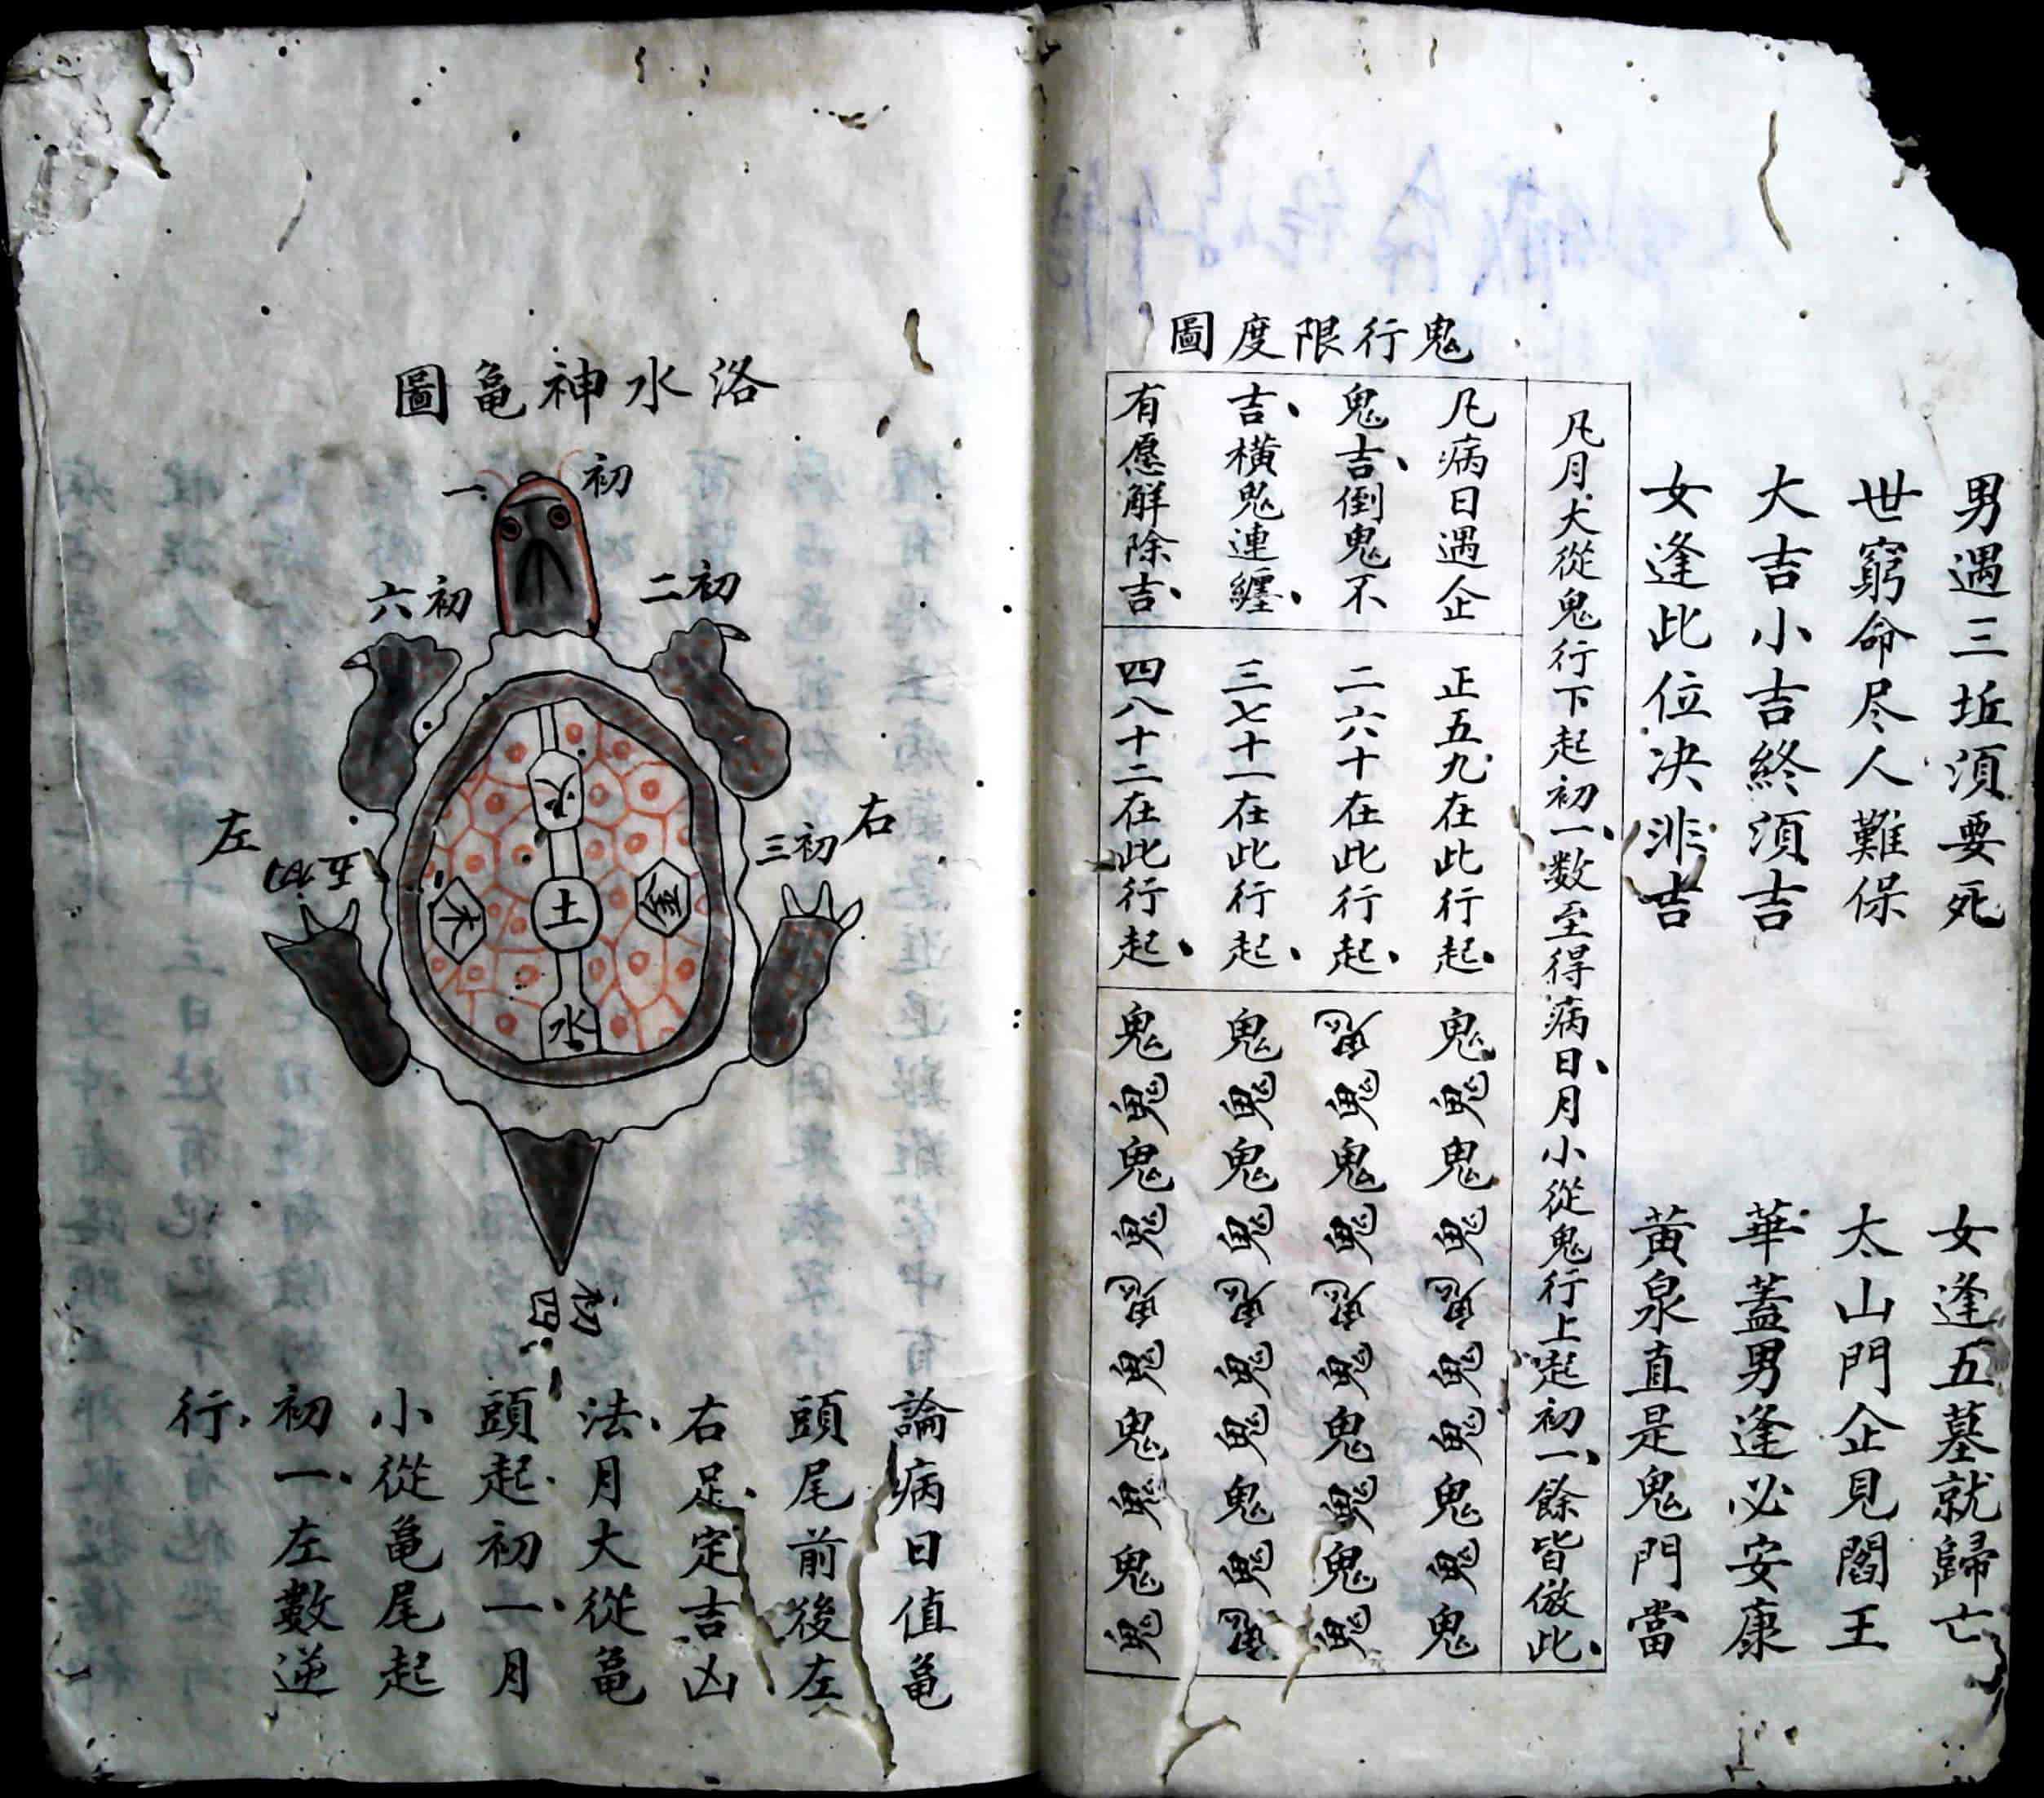 男遇三坵須要死
女逢五墓就歸亡
世窮命尽人難保
太山門企見閻王
大吉小吉終須吉
華蓋男逢必安康
女逢此位决非吉
黃泉直是鬼門當
鬼行限度圖
凡月大從鬼行下起初一、数至得病日、月小從鬼行上起初一、餘皆倣此、
凡病日遇企
鬼吉、倒鬼不
吉、横鬼連纏、
有愿解除吉、
正五九在此行起、
二六十在此行起、
三七十一在此行起、
四八十二在此行起、
鬼鬼鬼鬼鬼鬼鬼鬼鬼鬼
鬼鬼鬼鬼鬼鬼鬼鬼鬼鬼
鬼鬼鬼鬼鬼鬼鬼鬼鬼鬼
鬼鬼鬼鬼鬼鬼鬼鬼鬼鬼
洛水神亀圖
初一
初二
初六
右
初三
左
初五
火
金
土
木
水
初四
論病日值亀
頭尾前後左
右足、定吉凶
法、月大從亀
頭起、初一、月
小從亀尾起
初一、左數逆
行、